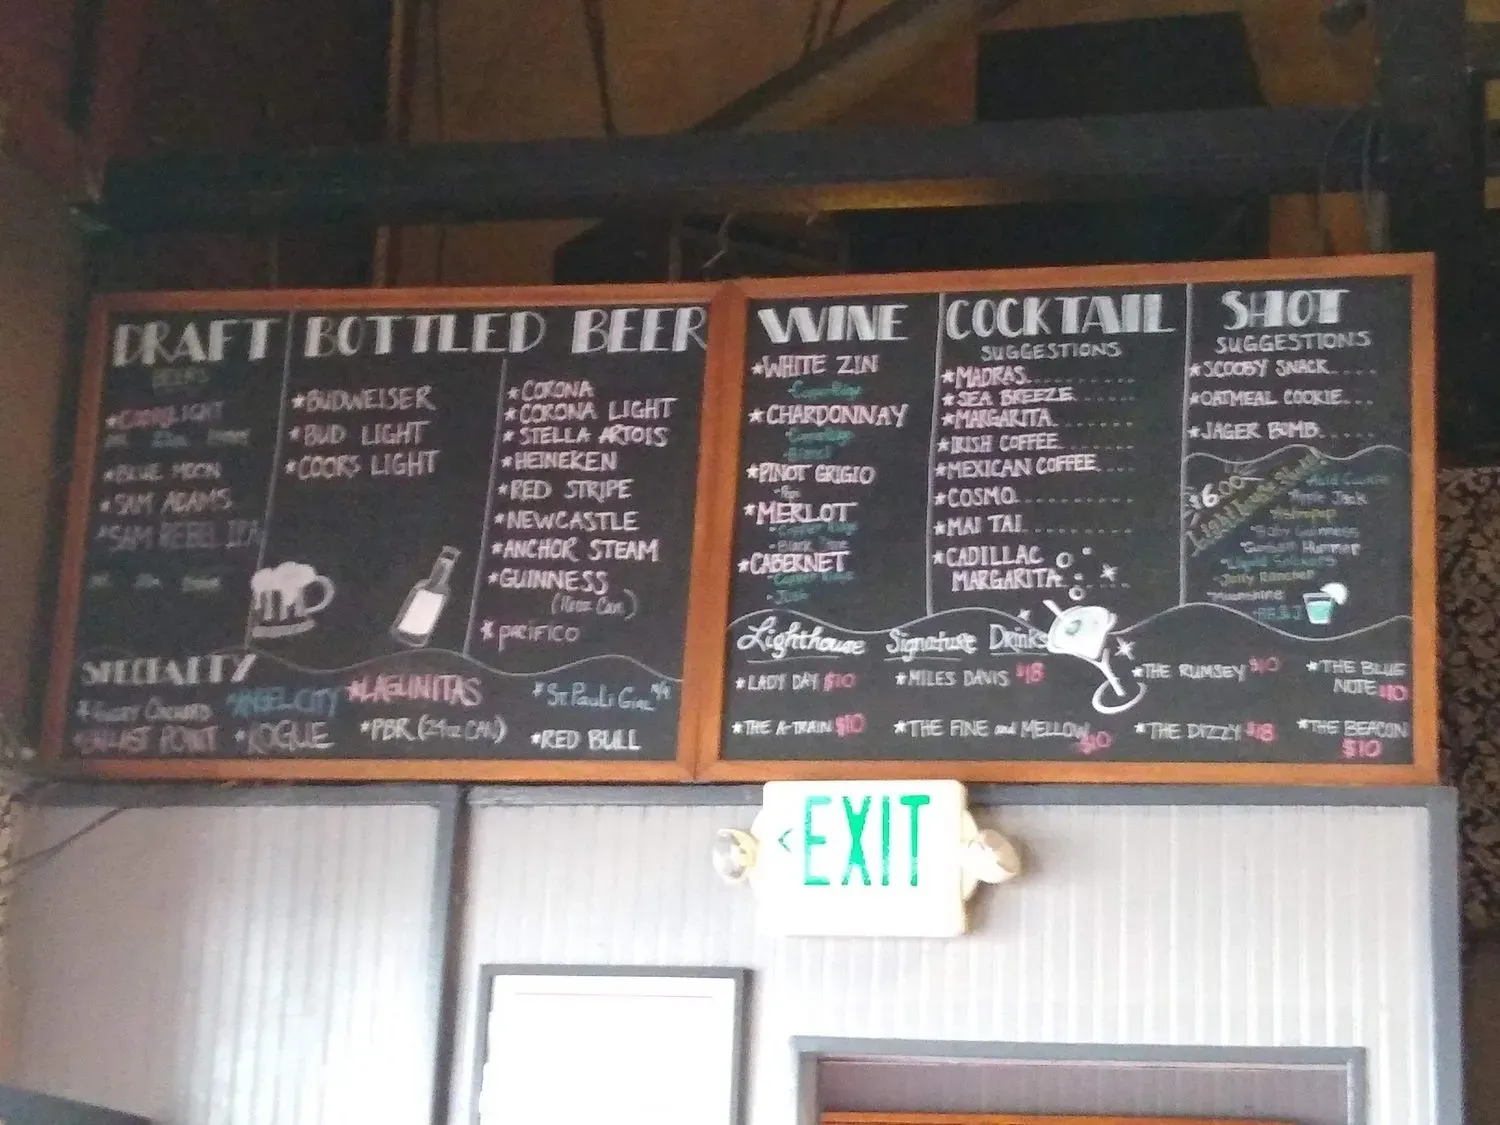 DRAFT
BEERS
LIGHT
*BLUE MOON
*SAM ADAMS
*SAM REBEL IPA
BOTTLED BEER
*BUDWEISER
*BUD LIGHT
*COORS LIGHT
*CORONA
*CORONA LIGHT
*STELLA ARTOIS
*HEINEKEN
*RED STRIPE
*NEWCASTLE
*ANCHOR STEAM
*GUINNESS
*PACIFICO
SPECIALTY
*ANGEL CITY
*LAGUNITAS
*ST. PAULI GIRL N/A
*BALLAST POINT
*ROGUE
*PBR (24oz CAN)
*RED BULL
WINE
*WHITE ZIN
*CHARDONNAY
*PINOT GRIGIO
*MERLOT
*CABERNET
COCKTAIL
SUGGESTIONS
*MADRAS
*SEA BREEZE
*MARGARITA
*IRISH COFFEE
*MEXICAN COFFEE
*COSMO
*MAI TAI
*CADILLAC
MARGARITA
SHOT
SUGGESTIONS
*SCOOBY SNACK
*OATMEAL COOKIE
*JAGER BOMB
$6.00
Lighthouse Shots
Apple Jack
*Baby Guinness
*Gummi Hummer
*Jolly Rancher
*Moonshine
*PB & J
Lighthouse Signature Drinks
*LADY DAY $10
*MILES DAVIS $18
*THE RUMSEY $10
*THE BLUE
NOTE $10
*THE A-TRAIN $10
*THE FINE and MELLOW $10
*THE DIZZY $18
*THE BEACON
$10
<EXIT